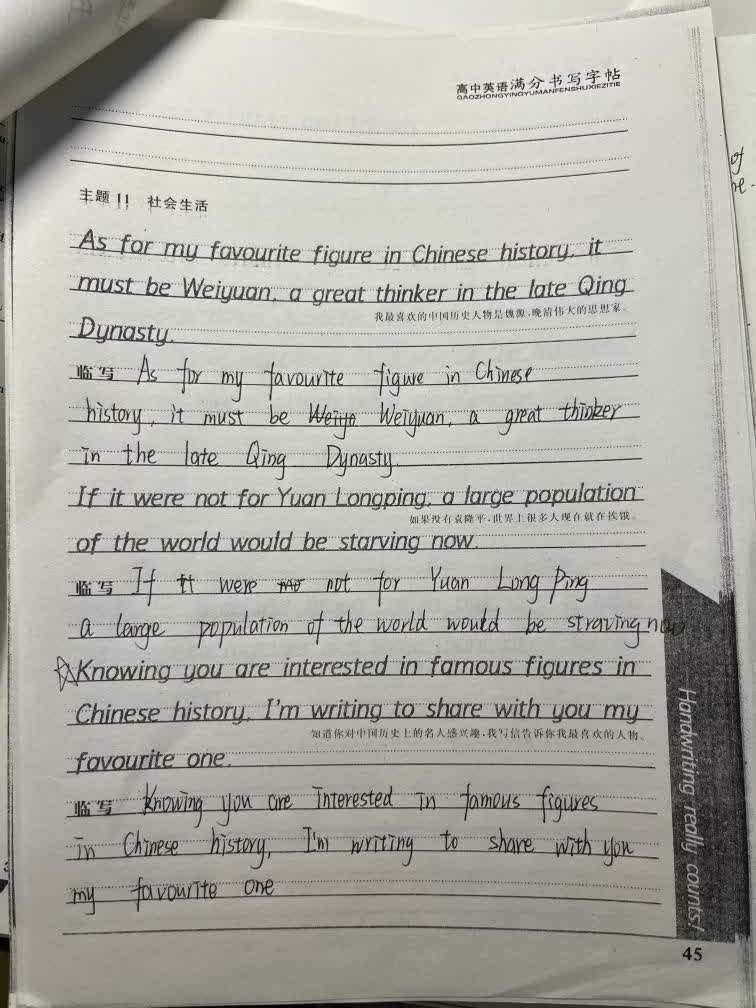 高中英语满分书写字帖
GAOZHONGYINGYUMANFENSHUXIEZITIE
主题 11 社会生活
As for my favourite figure in Chinese history, it
must be Weiyuan, a great thinker in the late Qing
我最喜欢的中国历史人物是魏源,晚清伟大的思想家。
Dynasty.
临写 As for my favourite figure in Chinese
history, it must be Weiyuan, a great thinker
in the late Qing Dynasty.
If it were not for Yuan Longping, a large population
如果没有袁隆平,世界上很多人现在就在挨饿。
of the world would be starving now.
临写 If it were not for Yuan Long Ping
a large population of the world would be straving now
Knowing you are interested in famous figures in
Chinese history, I'm writing to share with you my
知道你对中国历史上的名人感兴趣,我写信告诉你我最喜欢的人物。
favourite one.
临写 Knowing you are interested in famous figures
in Chinese history, I'm writing to share with you
my favourite one
Handwriting really counts!
45
of